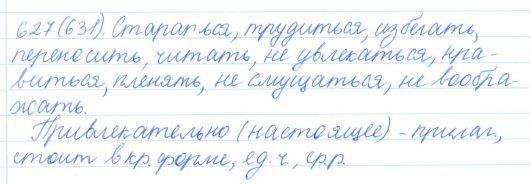 627(631). Стараться, трудиться, избегать,
переносить, читать, не увлекаться, нра-
виться, пленять, не смущаться, не вообра-
жать.
Привлекательно (настоящее) - прилаг.,
стоит в кр. форме, ед. ч., ср. р.